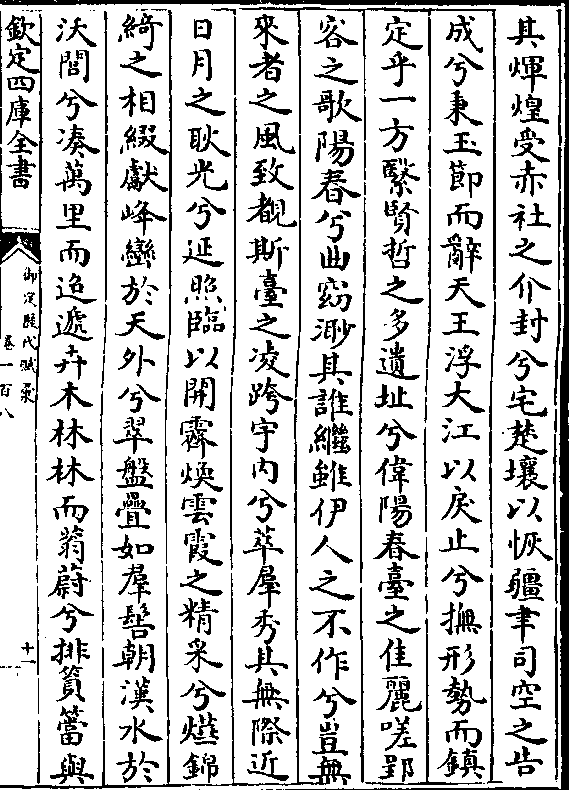 其煇煌受赤社之介封兮宅楚壤以恢疆聿司空之告
成兮秉玉節而辭天王浮大江以戾止兮撫形勢而鎮
定乎一方繄賢哲之多遺址兮偉陽春臺之佳麗嗟郢
客之歌陽春兮曲窈渺其誰繼雖伊人之不作兮豈無
來者之風致覩斯臺之凌跨宇內兮萃羣秀其無際近
日月之耿光兮延照臨以開霽煥雲霞之精采兮燕錦
綺之相綴獻峰巒於天外兮翠盤疊如羣髻朝漢水於
沃閭兮凑萬里而迢遞卉木林林而蓊蔚兮排篔簹與
欽定四庫全書
御定歷代賦彙
卷一百八
十一